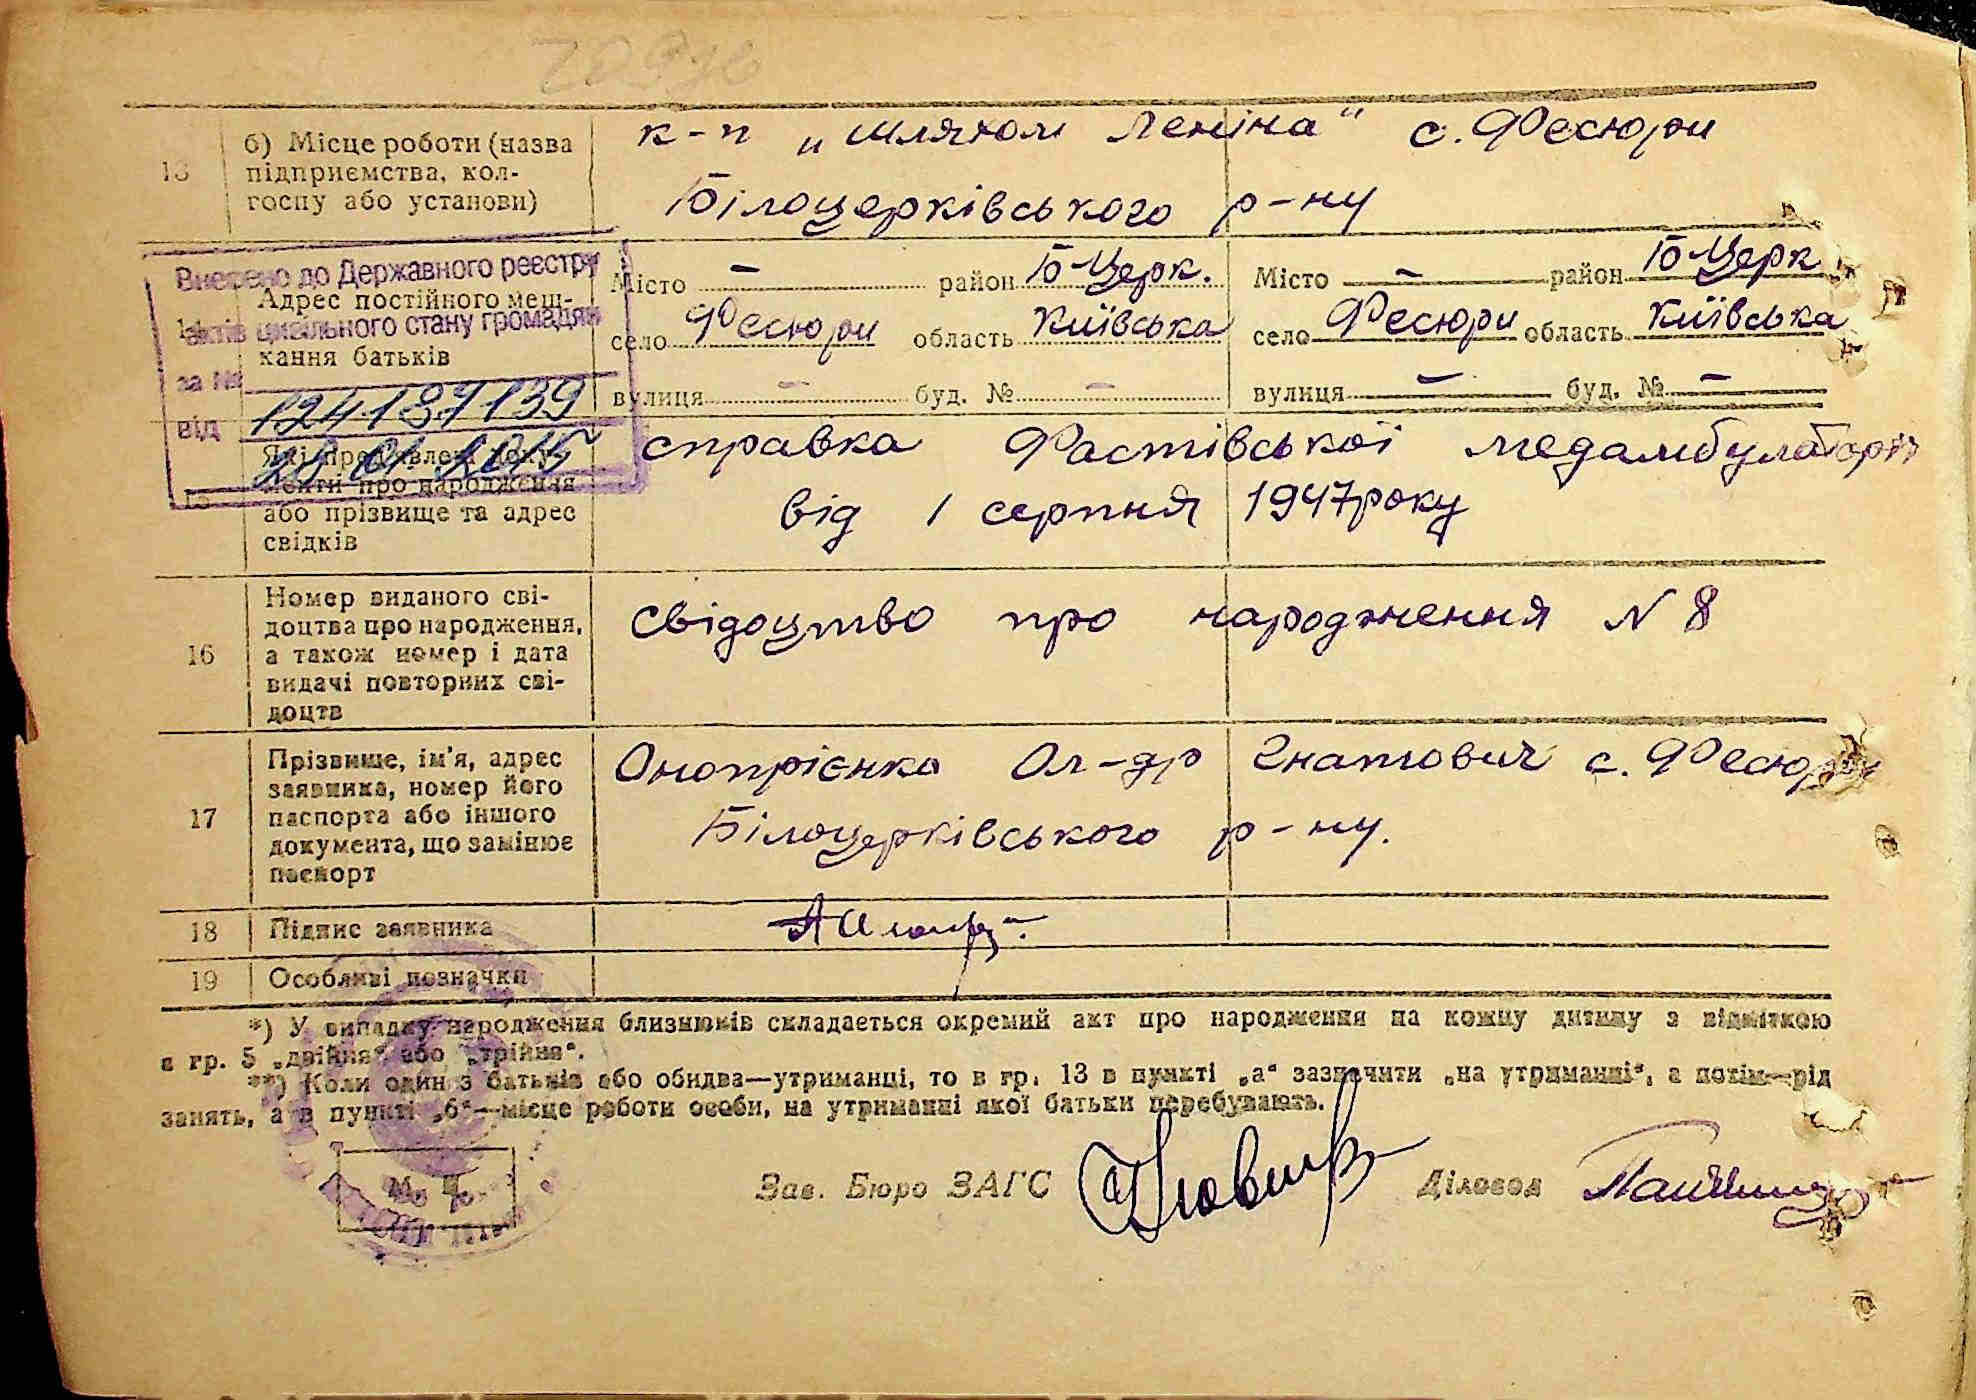 13
б) Місце роботи (назва
підприємства, кол-
госпу або установи)
к-п „Шляхом Леніна" с. Фесюри
Білоцерківського р-ну
Внесено до Державного реєстру
актів цивільного стану громадян
за №
124187139
від
29 01 2015
Адрес постійного меш-
кання батьків
Місто – район Б-Церк.
село Фесюри область Київська
вулиця – буд. № –
Місто – район Б-Церк
село Фесюри область Київська
вулиця – буд. № –
15
Які пред'явлені доку-
менти про народження
або прізвище та адрес
свідків
справка Фастівської медамбулаторії
від 1 серпня 1947 року
16
Номер виданого сві-
доцтва про народження,
а також номер і дата
видачі повторних сві-
доцтв
свідоцтво про народження N 8
17
Прізвище, ім'я, адрес
заявника, номер його
паспорта або іншого
документа, що замінює
паспорт
Онопрієнко Ол-др Гнатович с. Фесюри
Білоцерківського р-ну.
18
Підпис заявника
19
Особливі позначки
*) У випадку народження близнюків складається окремий акт про народження на кожну дитину з відміткою
в гр. 5 „двійня" або „трійня".
**) Коли один з батьків або обидва—утриманці, то в гр. 13 в пункті „а" зазначити „на утриманні", а потім—рід
занять, а в пункті „б"—місце роботи особи, на утриманні якої батьки перебувають.
М. П.
Зав. Бюро ЗАГС
Діловод